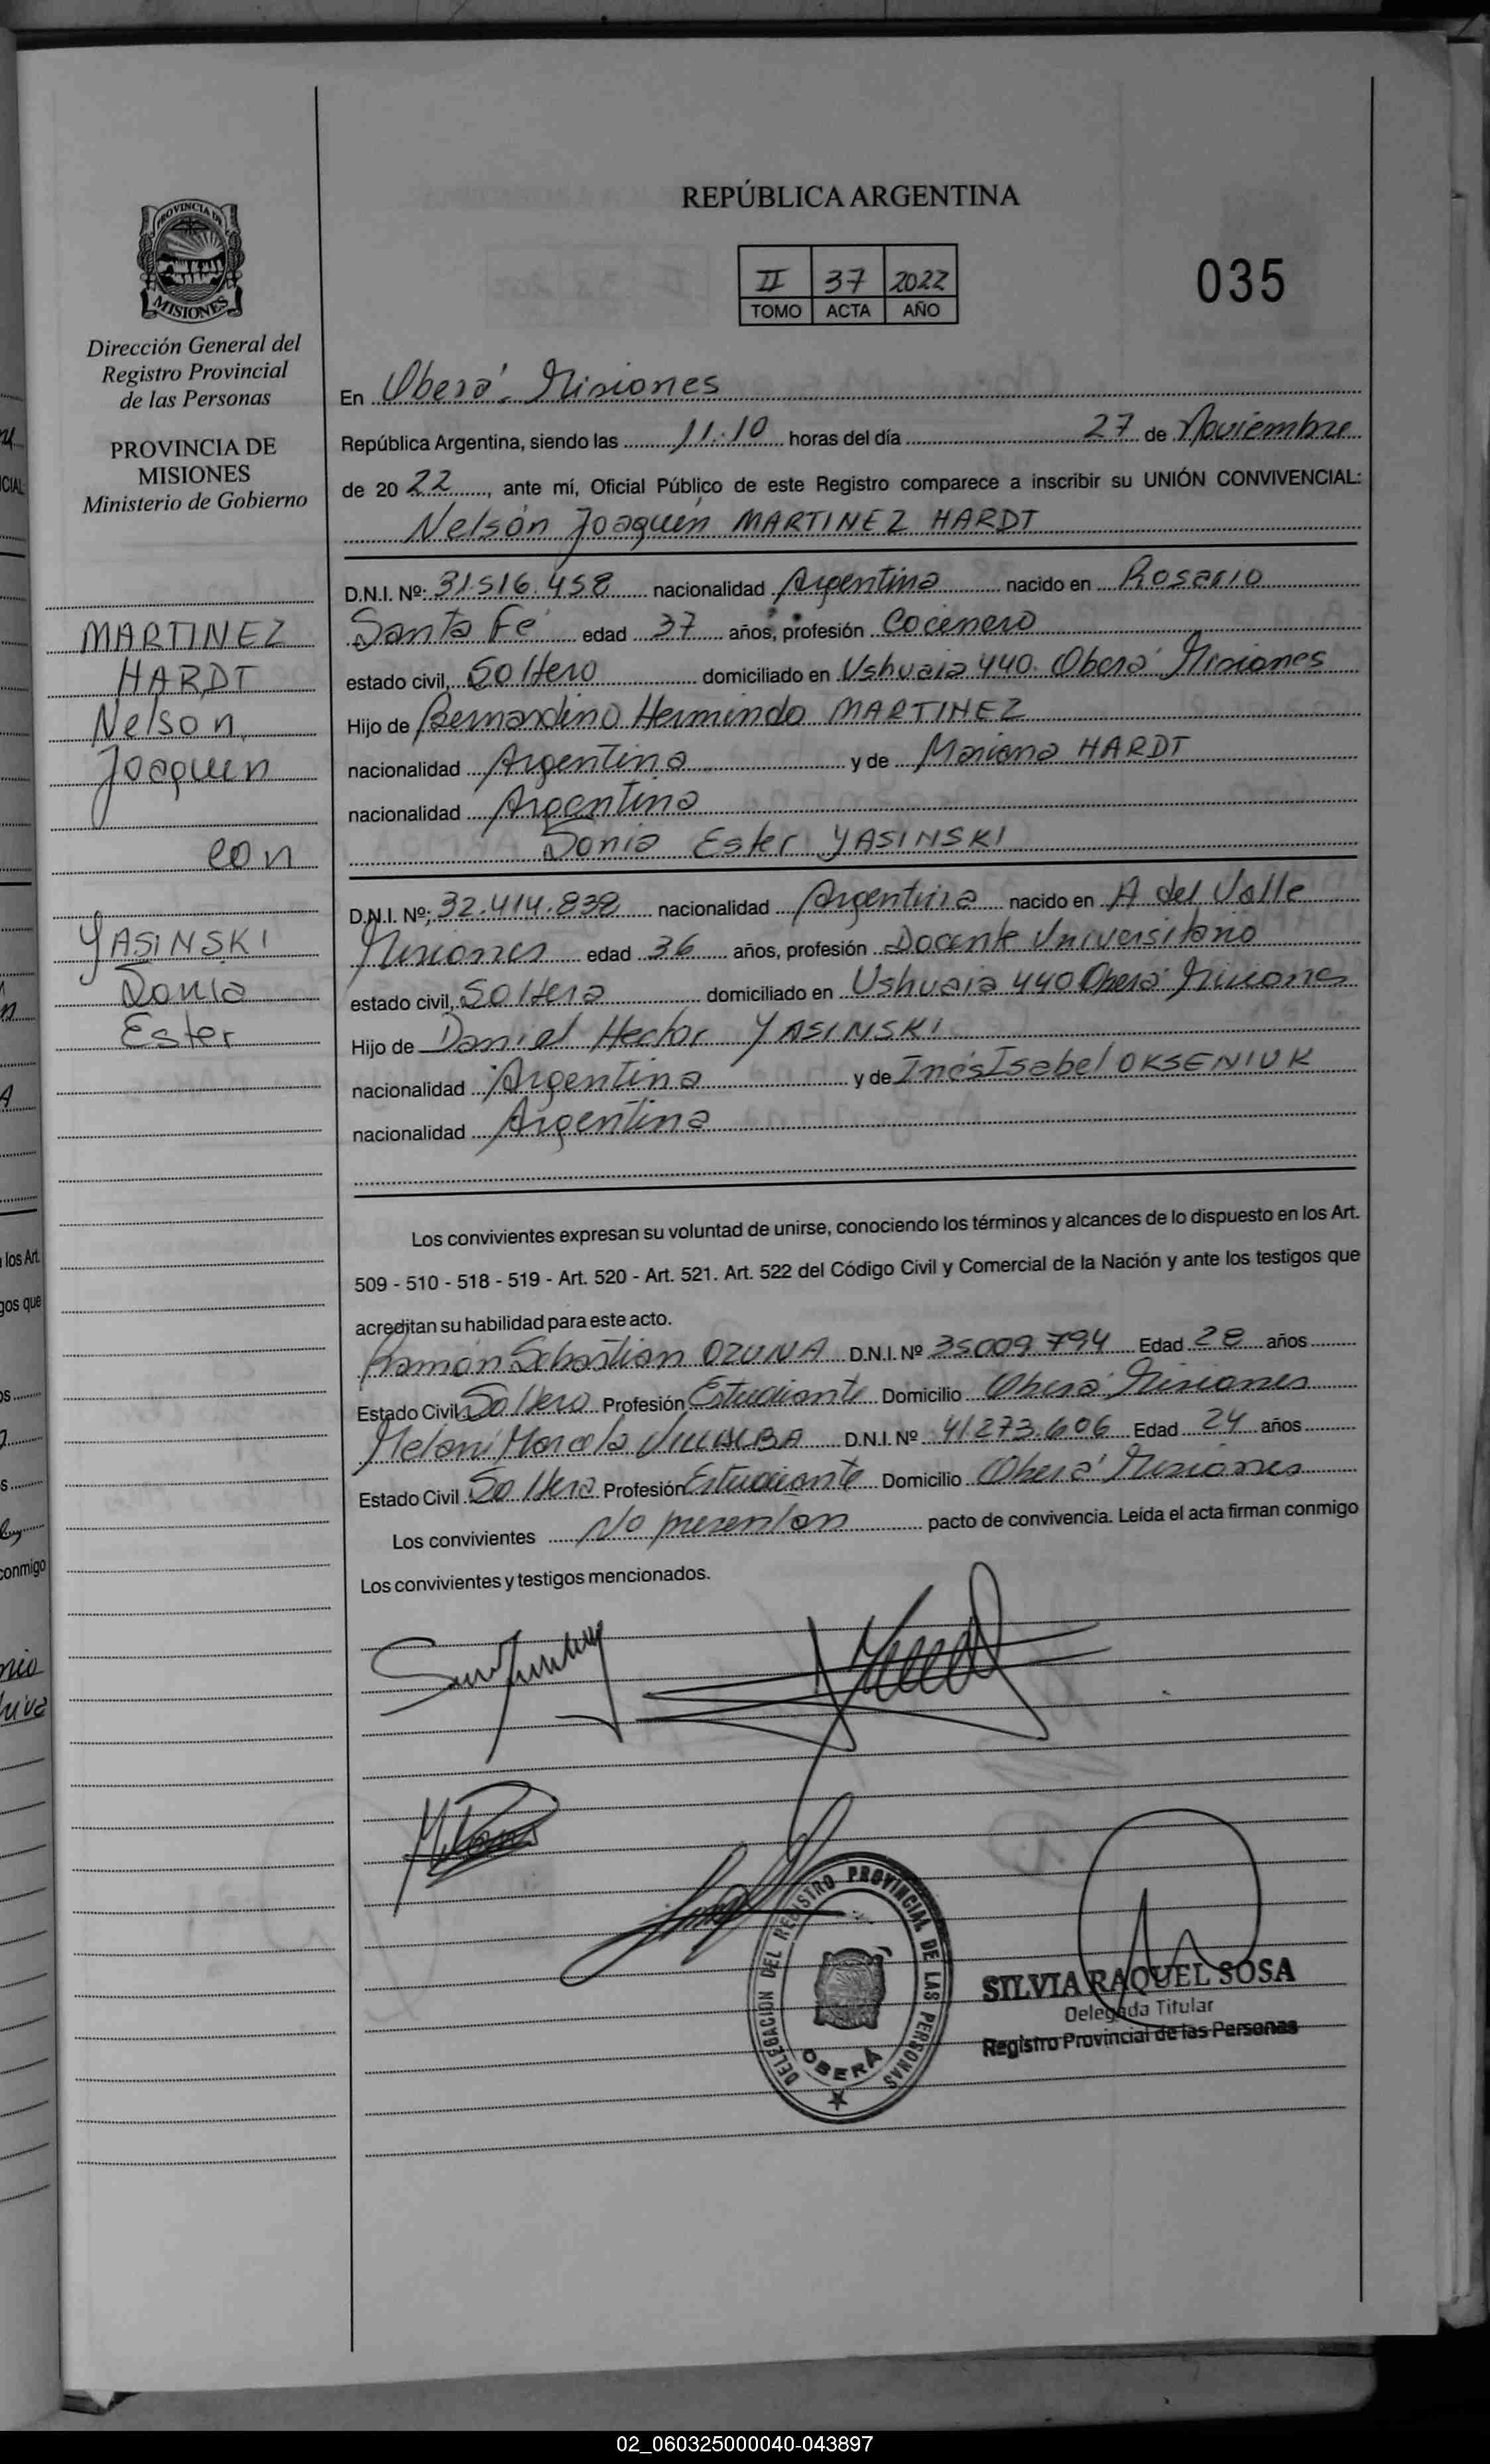 REPÚBLICA ARGENTINA
PROVINCIA DE
MISIONES
II 37 2022
TOMO ACTA AÑO
035
Dirección General del
Registro Provincial
de las Personas
PROVINCIA DE
MISIONES
Ministerio de Gobierno
MARTINEZ
HARDT
Nelson
Joaquin
con
YASINSKI
Sonia
Ester
En Oberá. Misiones
República Argentina, siendo las 11:10 horas del día 27 de Noviembre
de 2022, ante mí, Oficial Público de este Registro comparece a inscribir su UNIÓN CONVIVENCIAL:
Nelsón Joaquín MARTINEZ HARDT
D.N.I. Nº: 31.516.458 nacionalidad Argentina nacido en Rosario
Santa Fé edad 37 años, profesión Cocinero
estado civil, Soltero domiciliado en Ushuaia 440. Oberá Misiones
Hijo de Bernardino Hermindo MARTINEZ
nacionalidad Argentina y de Mariana HARDT
nacionalidad Argentina
Sonia Ester YASINSKI
D.N.I. Nº; 32.414.838 nacionalidad Argentina nacido en A del Valle
Misiones edad 36 años, profesión Docente Universitario
estado civil, Soltera domiciliado en Ushuaia 440 Oberá Misiones
Hijo de Daniel Hector YASINSKI
nacionalidad Argentina y de Inés Isabel OKSENIUK
nacionalidad Argentina
Los convivientes expresan su voluntad de unirse, conociendo los términos y alcances de lo dispuesto en los Art.
509 - 510 - 518 - 519 - Art. 520 - Art. 521. Art. 522 del Código Civil y Comercial de la Nación y ante los testigos que
acreditan su habilidad para este acto.
Ramón Sebastian OZUNA D.N.I. Nº 35009.794 Edad 28 años
Estado Civil Soltero Profesión Estudiante Domicilio Oberá Misiones
Melani Marcela VILLALBA D.N.I. Nº 41273.606 Edad 24 años
Estado Civil Soltera Profesión Estudiante Domicilio Oberá Misiones
Los convivientes No presentan pacto de convivencia. Leída el acta firman conmigo
Los convivientes y testigos mencionados.
DELEGACION DEL REGISTRO PROVINCIAL DE LAS PERSONAS
OBERÁ
SILVIA RAQUEL SOSA
Delegada Titular
Registro Provincial de las Personas
02_060325000040-043897